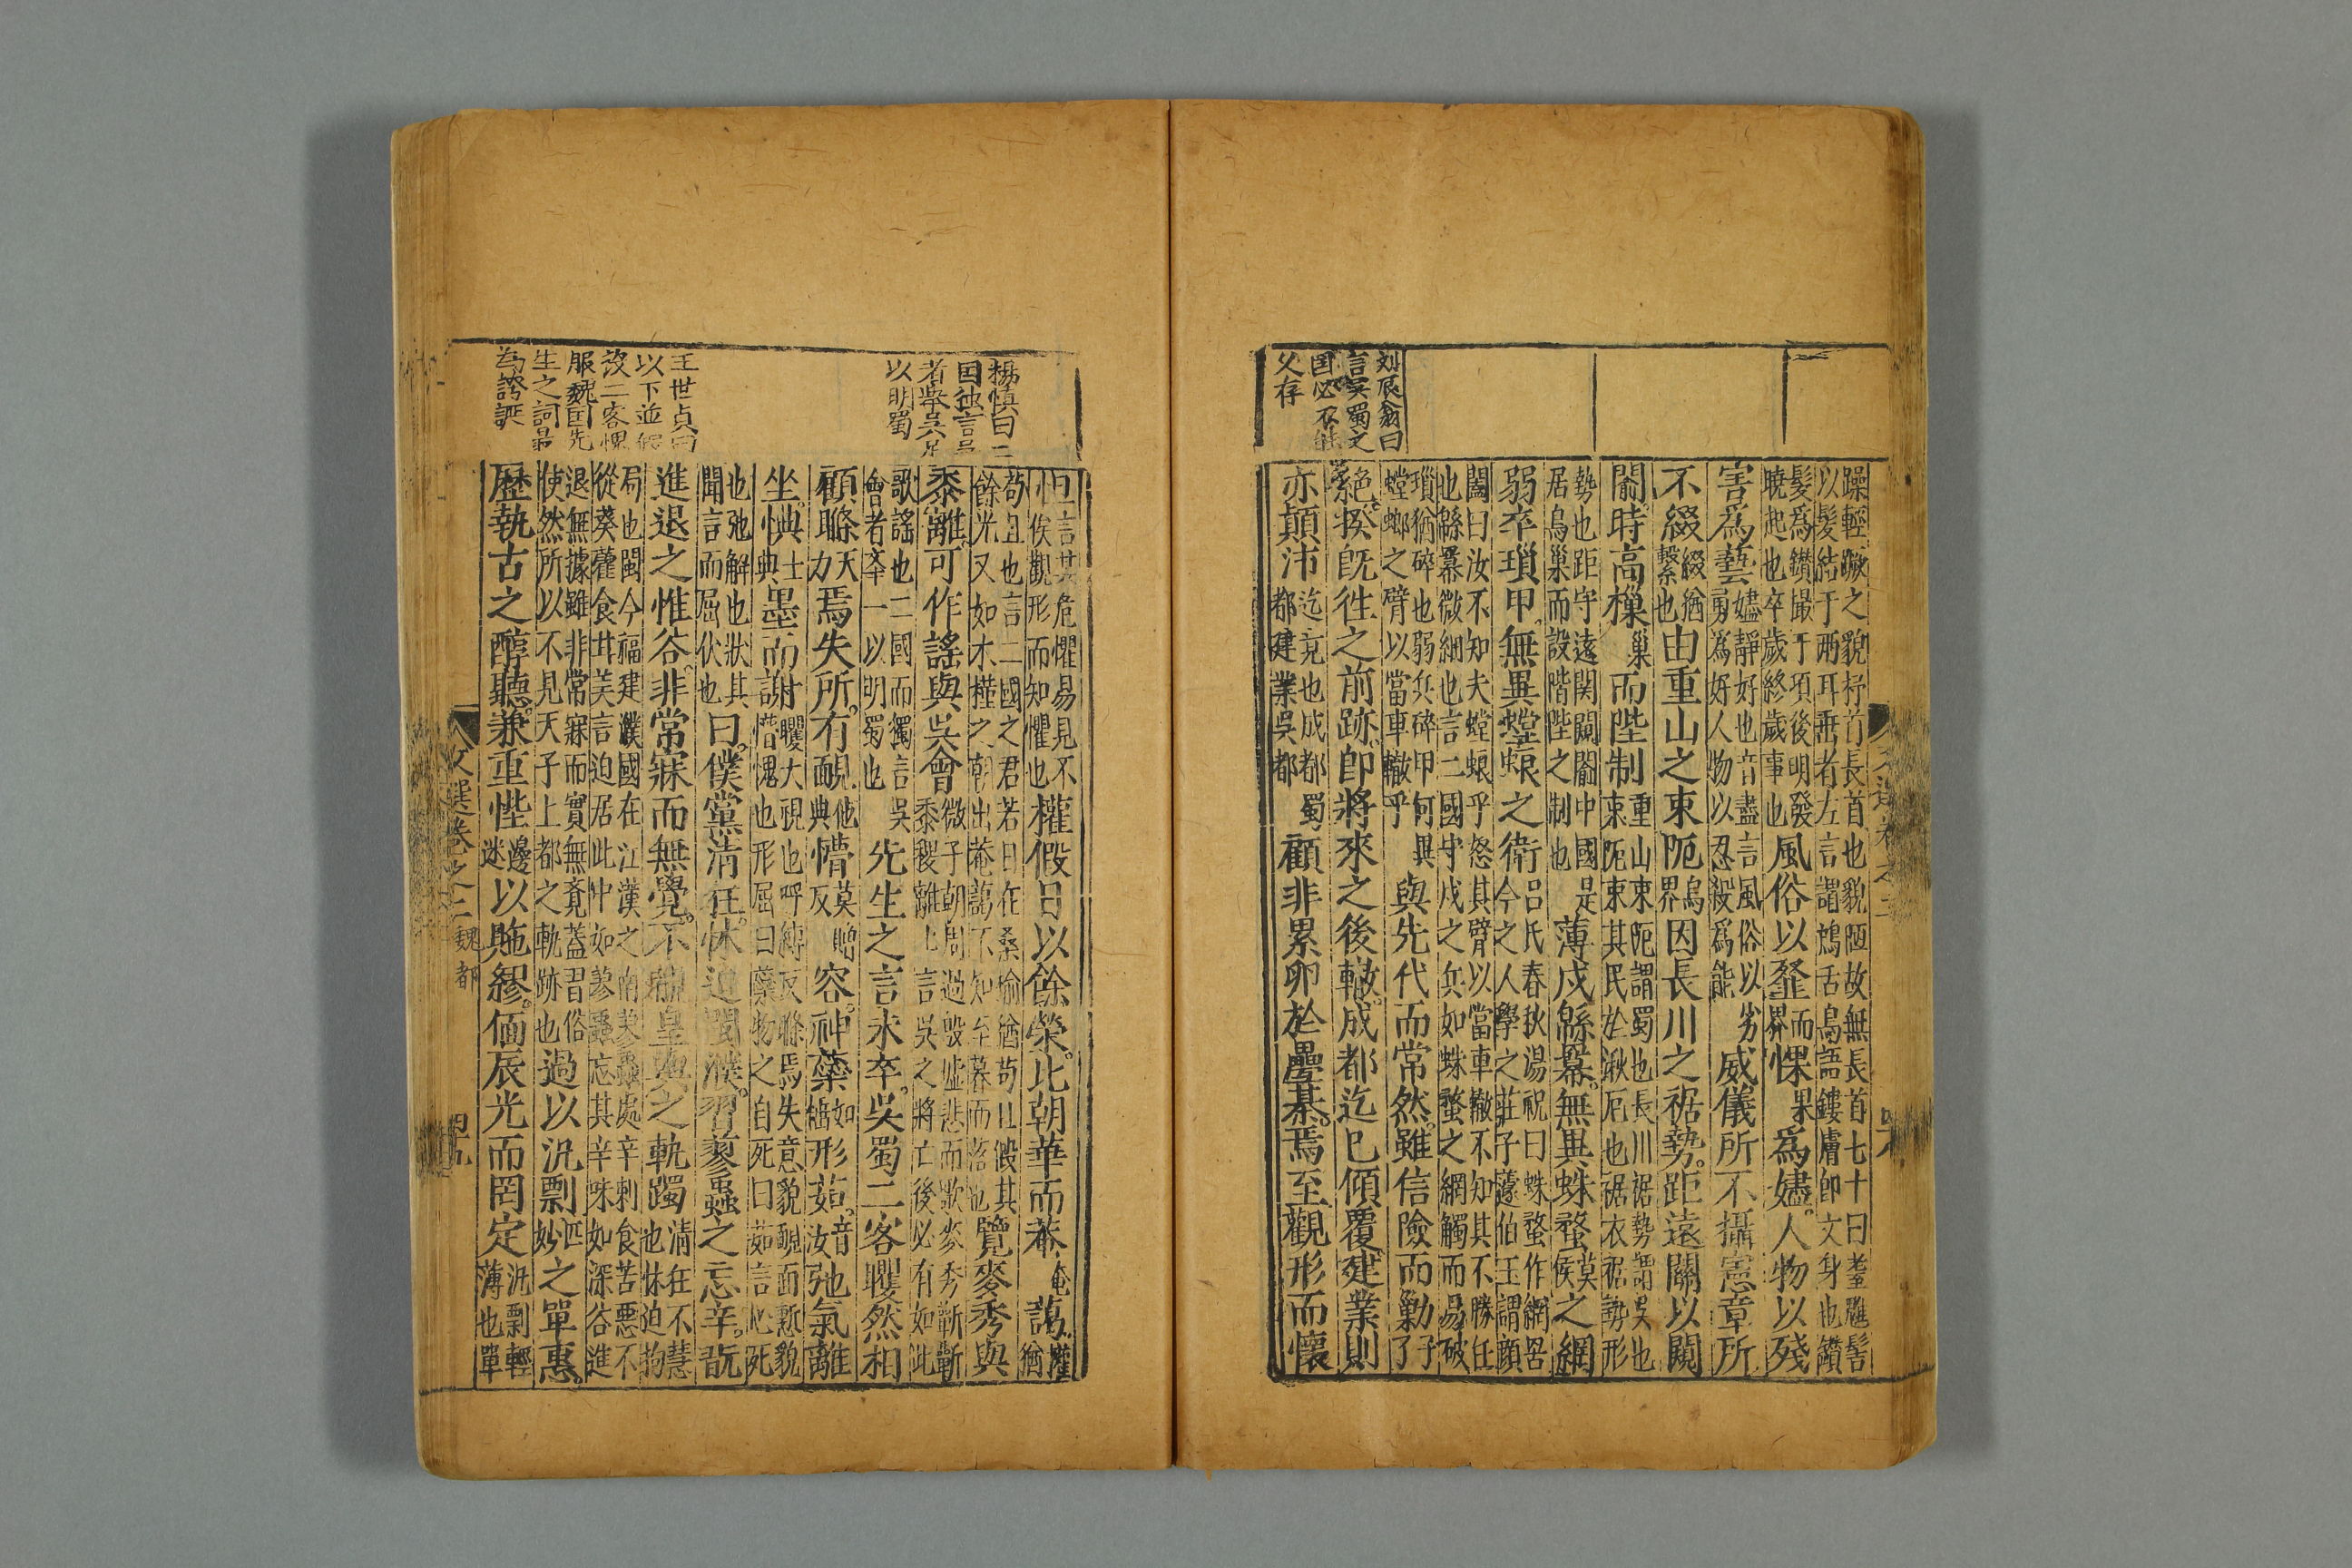 刘辰翁曰
言吳蜀之
国必不能
父存
躁輕蹶之貌杼首長首也貌陋故無長首七十曰耋雕髻
以髮結于兩耳垂者左言謂鴂舌鳥語鏤膚即文身也鑽
髮爲鑚撮于項後明發
曉起也卒歲終歲事也
風俗以韰而界惈果爲嫿人物以殘
害爲藝
嫿靜好也音盡言風俗以劣
勇爲好人物以忍殺爲能
威儀所不攝憲章所
不綴
綴猶
繫也
由重山之束阨烏界因長川之裾勢距遠關以闚
䦨時高樔巢而陛制
重山束阨謂蜀也長川裾勢謂吳也
束阨束其民於湫厄也裾衣裾勢形
勢也距守遠関闚䦨中國
居烏巢而設階陛之制也
是薄戍緜幕無異蛛蝥莫侯之網
弱卒瑣甲無異螳蜋之衛
呂氏春秋湯祝曰蛛蝥作網罟
今之人學之莊子蘧伯玉謂顔
闔曰汝不知夫螳蜋乎怒其臂以當車轍不知其不勝任
也緜幕微細也言二國守戍之兵如蛛蝥之網觸而易破
瑣猶碎也弱兵碎甲何異
螳螂之臂以當車轍乎
與先代而常然雖信險而勦子了
絕揆旣徃之前跡卽將來之後轍成都迄已傾覆建業則
亦顛沛
迄竟也成都蜀
都建業吳都
顧非累卵於疊棊焉至觀形而懷
楊慎曰二
国独言吳
者舉吳足
以明蜀
王世貞曰
以下並
設二客惈
服魏国先
生之詞最
為誇誕
怛
言其危懼易見不
俟觀形而知懼也
權假日以餘榮比朝華而菴奄藹槿猶
苟且也言二國之君若日在桑榆猶苟且假其
餘光又如木槿之朝出菴藹不知至暮而落也
覽麥秀與
黍離可作謠與吳會
微子朝周過殷墟悲而歌麥秀蔪蔪
黍稷離離上言吳之將亡後必有如此
歌謠也二國而獨言吳
會者夲一以明蜀也
先生之言未卒吳蜀二客矍然相
顧䀢天力焉失所有靦他典懵莫贈反容神蘂如形茹音汝弛氣離
坐惉士典墨而謝
矍大視也䀢焉失意貌靦面慙貌
懵愧也形屈曰蘂物之自死曰茹言心死
也弛解也狀其
聞言而屈伏也
曰僕黨清狂怵迫閩濮習蓼蟲之忘辛翫
進退之惟谷非常寐而無覺不覩皇輿之軌躅
清狂不慧
也怵迫拘
局也閩今福建濮國在江漢之南蓼蟲處辛刺食苦惡不
從葵藿食甘美言迫居此中如蓼蟲忘其辛昧如深谷進
退無據雖非常寐而實無覺蓋習俗
使然所以不見天子上都之軌跡也
過以汎剽匹妙之單惠
歷執古之醇聽兼重悂邊迷以貤繆偭辰光而罔定
汎剽輕
薄也單
文選卷之三
魏都
四九